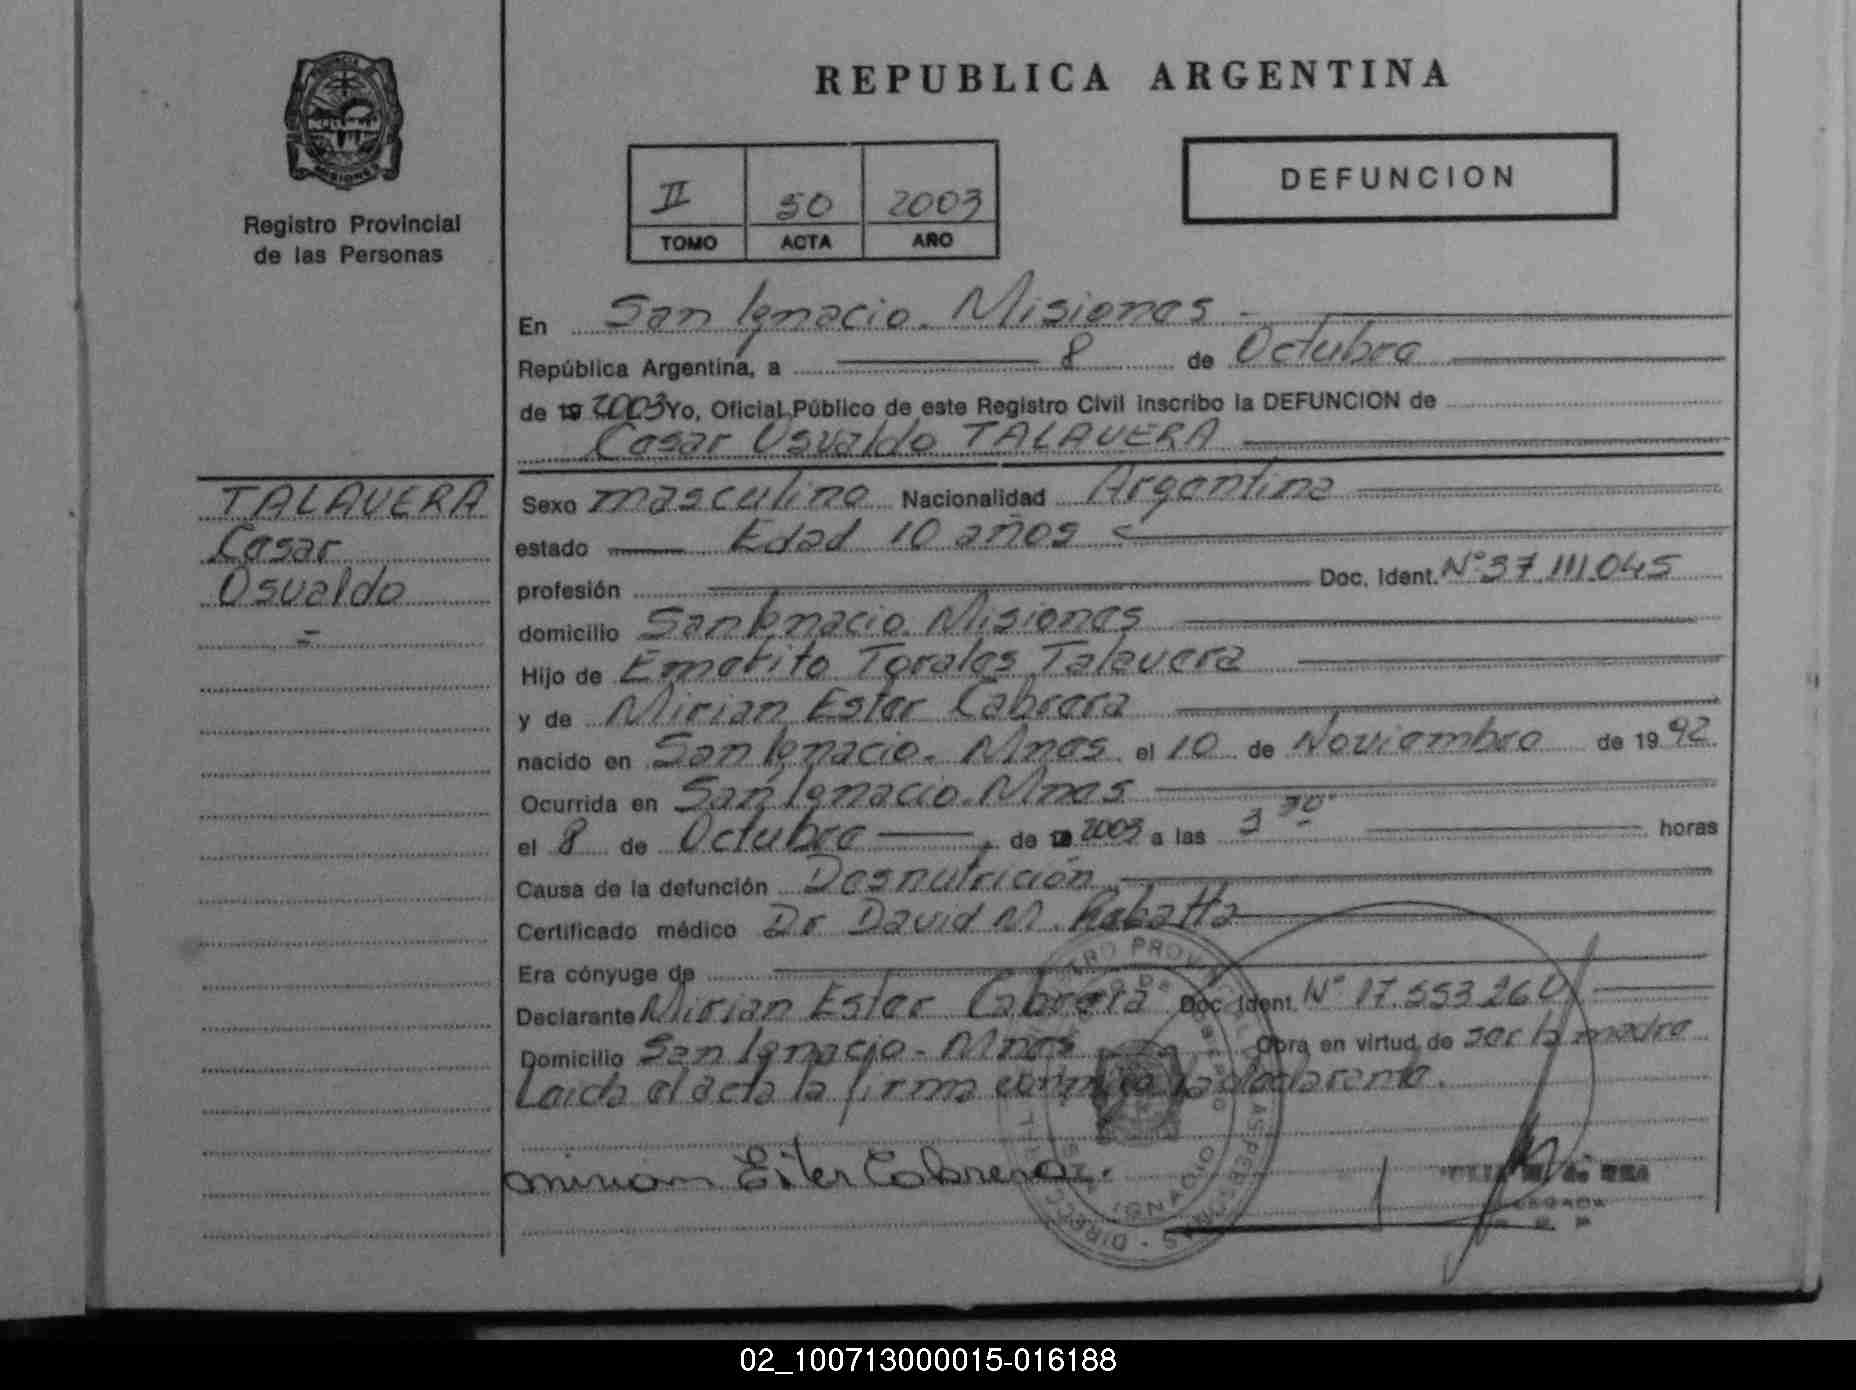 REPUBLICA ARGENTINA
PROVINCIA DE
MISIONES
Registro Provincial
de las Personas
II 50 2003
TOMO ACTA AÑO
DEFUNCION
En San Ignacio. Misiones
República Argentina, a 8 de Octubre
de 19 2003 Yo, Oficial Público de este Registro Civil inscribo la DEFUNCION de
Cesar Osvaldo TALAVERA
TALAVERA
Cesar
Osvaldo
Sexo masculino Nacionalidad Argentina
estado Edad 10 años
profesión Doc. Ident. N° 37.111.045
domicilio San Ignacio. Misiones
Hijo de Emerito Torales Talavera
y de Mirian Ester Cabrera
nacido en San Ignacio. Mnes. el 10 de Noviembre de 19 92
Ocurrida en San Ignacio. Mnes
el 8 de Octubre de 2003 a las 3 30 horas
Causa de la defunción Desnutrición
Certificado médico Dr David M. Rabatta
Era cónyuge de
Declarante Mirian Ester Cabrera Doc. Ident. N° 17.553.260
Domicilio San Ignacio - Mnes Obra en virtud de ser la madre
Leida el acta la firma conmigo la declarante.
Mirian Ester Cabrera.
02_100713000015-016188